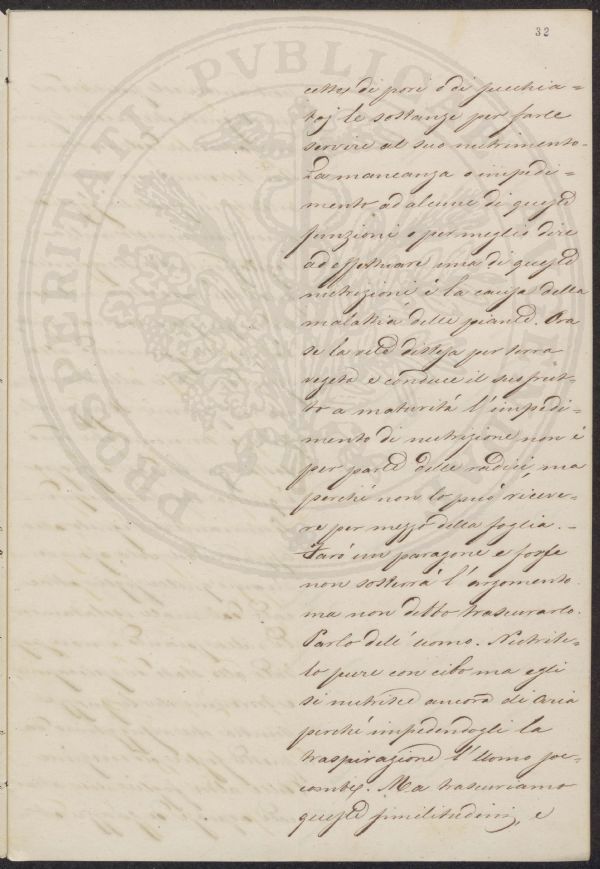 32
cetto di pori o di succhia=
toj le sostanze per farle
servire al suo nutrimento.
La mancanza o impedi=
mento ad alcune di queste
funzioni o per meglio dire
ad effettuare una di queste
nutrizioni è la causa della
malattia delle piante. Ora
se la vite distesa per terra
vegeta e conduce il suo frut=
to a maturità l'impedi=
mento di nutrizione non è
per parte delle radici, ma
perché non lo può riceve=
re per mezzo della foglia. –
Farò un paragone e forse
non sosterrà l'argomento
ma non debbo trascurarlo.
Parlo dell'uomo. Nutrite=
lo pure con cibo ma egli
si nutrisce ancora di aria
perché impedendogli la
traspirazione l'Uomo soc=
combe. Ma trascuriamo
queste similitudini, e
PROSPERITATI PVBLICAE